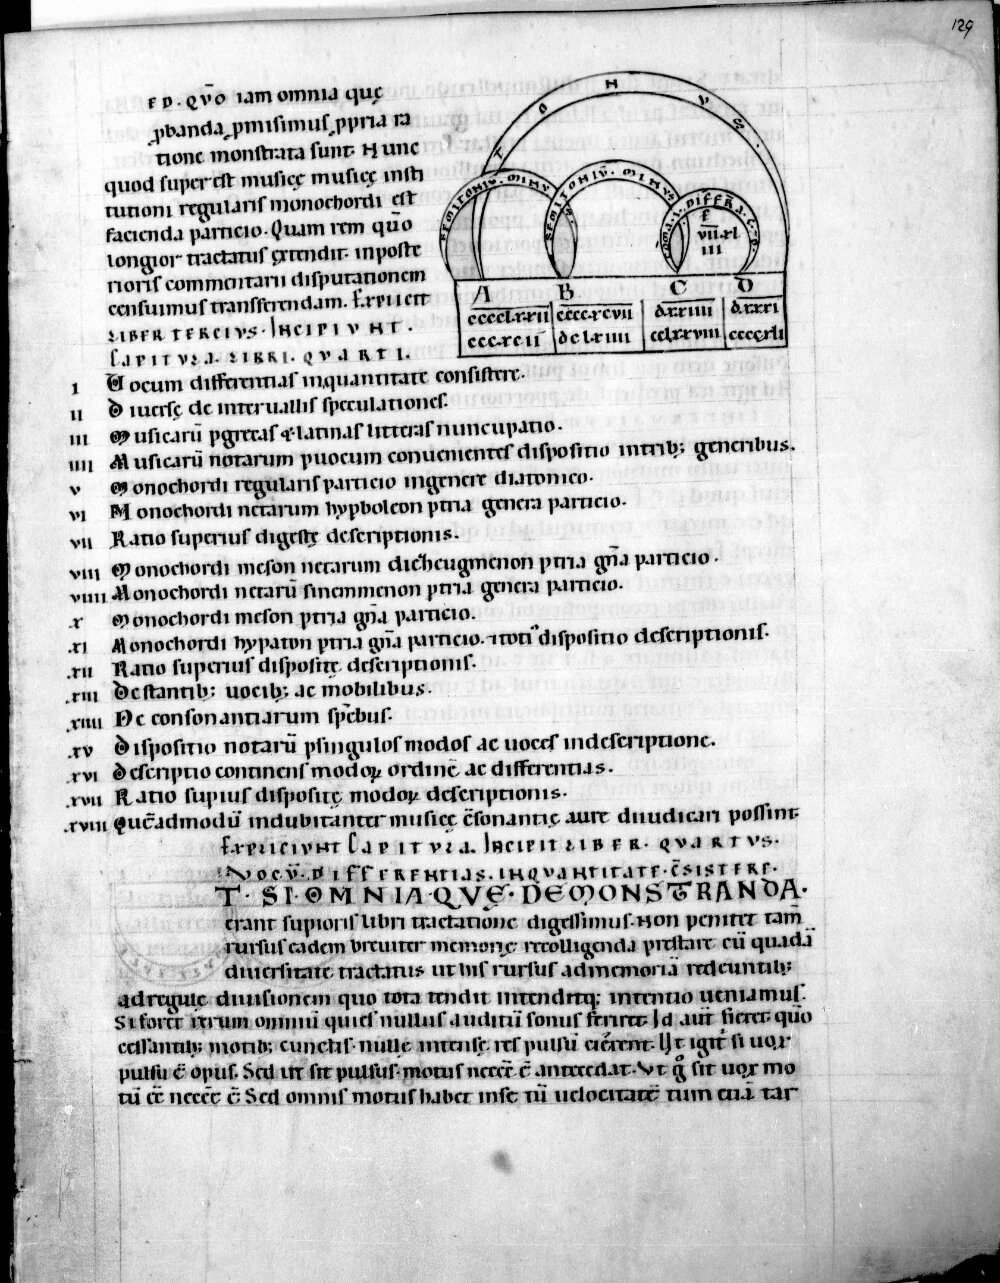 129
ED. QVO iam omnia quę
ꝓbanda ꝓmisimus ꝓpria ra
tione monstrata sunt. Hunc
quod super est musicę musicę insti
tutioni regularis monochordi est
facienda particio. Quam rem quō
longior tractatus ęxtendit. inposte
rioris commentarii disputationem
censuimus transferendam. Explicit
LIBER TERCIVS. INCIPIVNT.
CAPITVLA. LIBRI. QVARTI.
TONVS.
SEMITONIV̄. MINVS
SEMITONIV̄. MINVS
COMA. DIFFERA. C. D.
E
vii.xl
iii
A B C D
cccclxxii ccccxcvii dxxiiii dxxxi
dclxiiii cclxxviii ccccxli
I Uocum differentias inquantitate consistere.
II Diuersę de interuallis speculationes.
III Musicarū pgrecas & latinas litteras nuncupatio.
IIII Musicarū notarum puocum conuenientes dispositio intribꝫ generibus.
V Monochordi regularis particio ingenere diatonico.
VI Monochordi netarum hypboleon ptria genera particio.
VII Ratio superius digestę descriptionis.
VIII Monochordi meson netarum diezeugmenon ptria gn̄a particio.
VIIII Monochordi netarū sinenmenon ptria genera particio.
.X Monochordi meson ptria gn̄a particio.
.XI Monochordi hypaton ptria gn̄a particio. ⁊toti dispositio descriptionis.
.XII Ratio superius dispositę descriptionis.
.XIII De stantibꝫ uocibꝫ ac mobilibus.
.XIIII De consonantiarum sp̄ebus.
.XV Dispositio notarū psingulos modos ac uoces indescriptione.
.XVI Descriptio continens modoꝝ ordinē ac differentias.
.XVII Ratio supius dispositę modoꝝ descriptionis.
.XVIII Quēadmodū indubitanter musicę c̄sonantię aure diiudicari possint.
EXPLICIVNT CAPITVLA. INCIPIT LIBER. QVARTVS.
VOCV̄. DIFFERENTIAS. INQVANTITATE. C̄SISTERE.
T. SI. OMNIA. QVĘ. DEMONSTRANDA.
erant supioris libri tractatione digessimus. Non penitet tam̄
rursus eadem breuiter memorię recolligenda prestare cū quadā
diuersitate tractatus ut his rursus admemoriā redeuntibꝫ
adregulę diuisionem quo tota tendit intenditqꝫ intentio ueniamus.
Si foret rerum omniū quies nullus auditū sonus feriret. Id aut̄ fieret. quō
cessantibꝫ motibꝫ cunctis. nullę interse res pulsū cierent. Ut igit̄ si uox
pulsu ē opus. Sed ut sit pulsus. motus necēē ē antecedat. Vt g̊ sit uox mo
tū ēē necēē ē. Sed omnis motus habet inse tū uelocitatē tum etiā tar